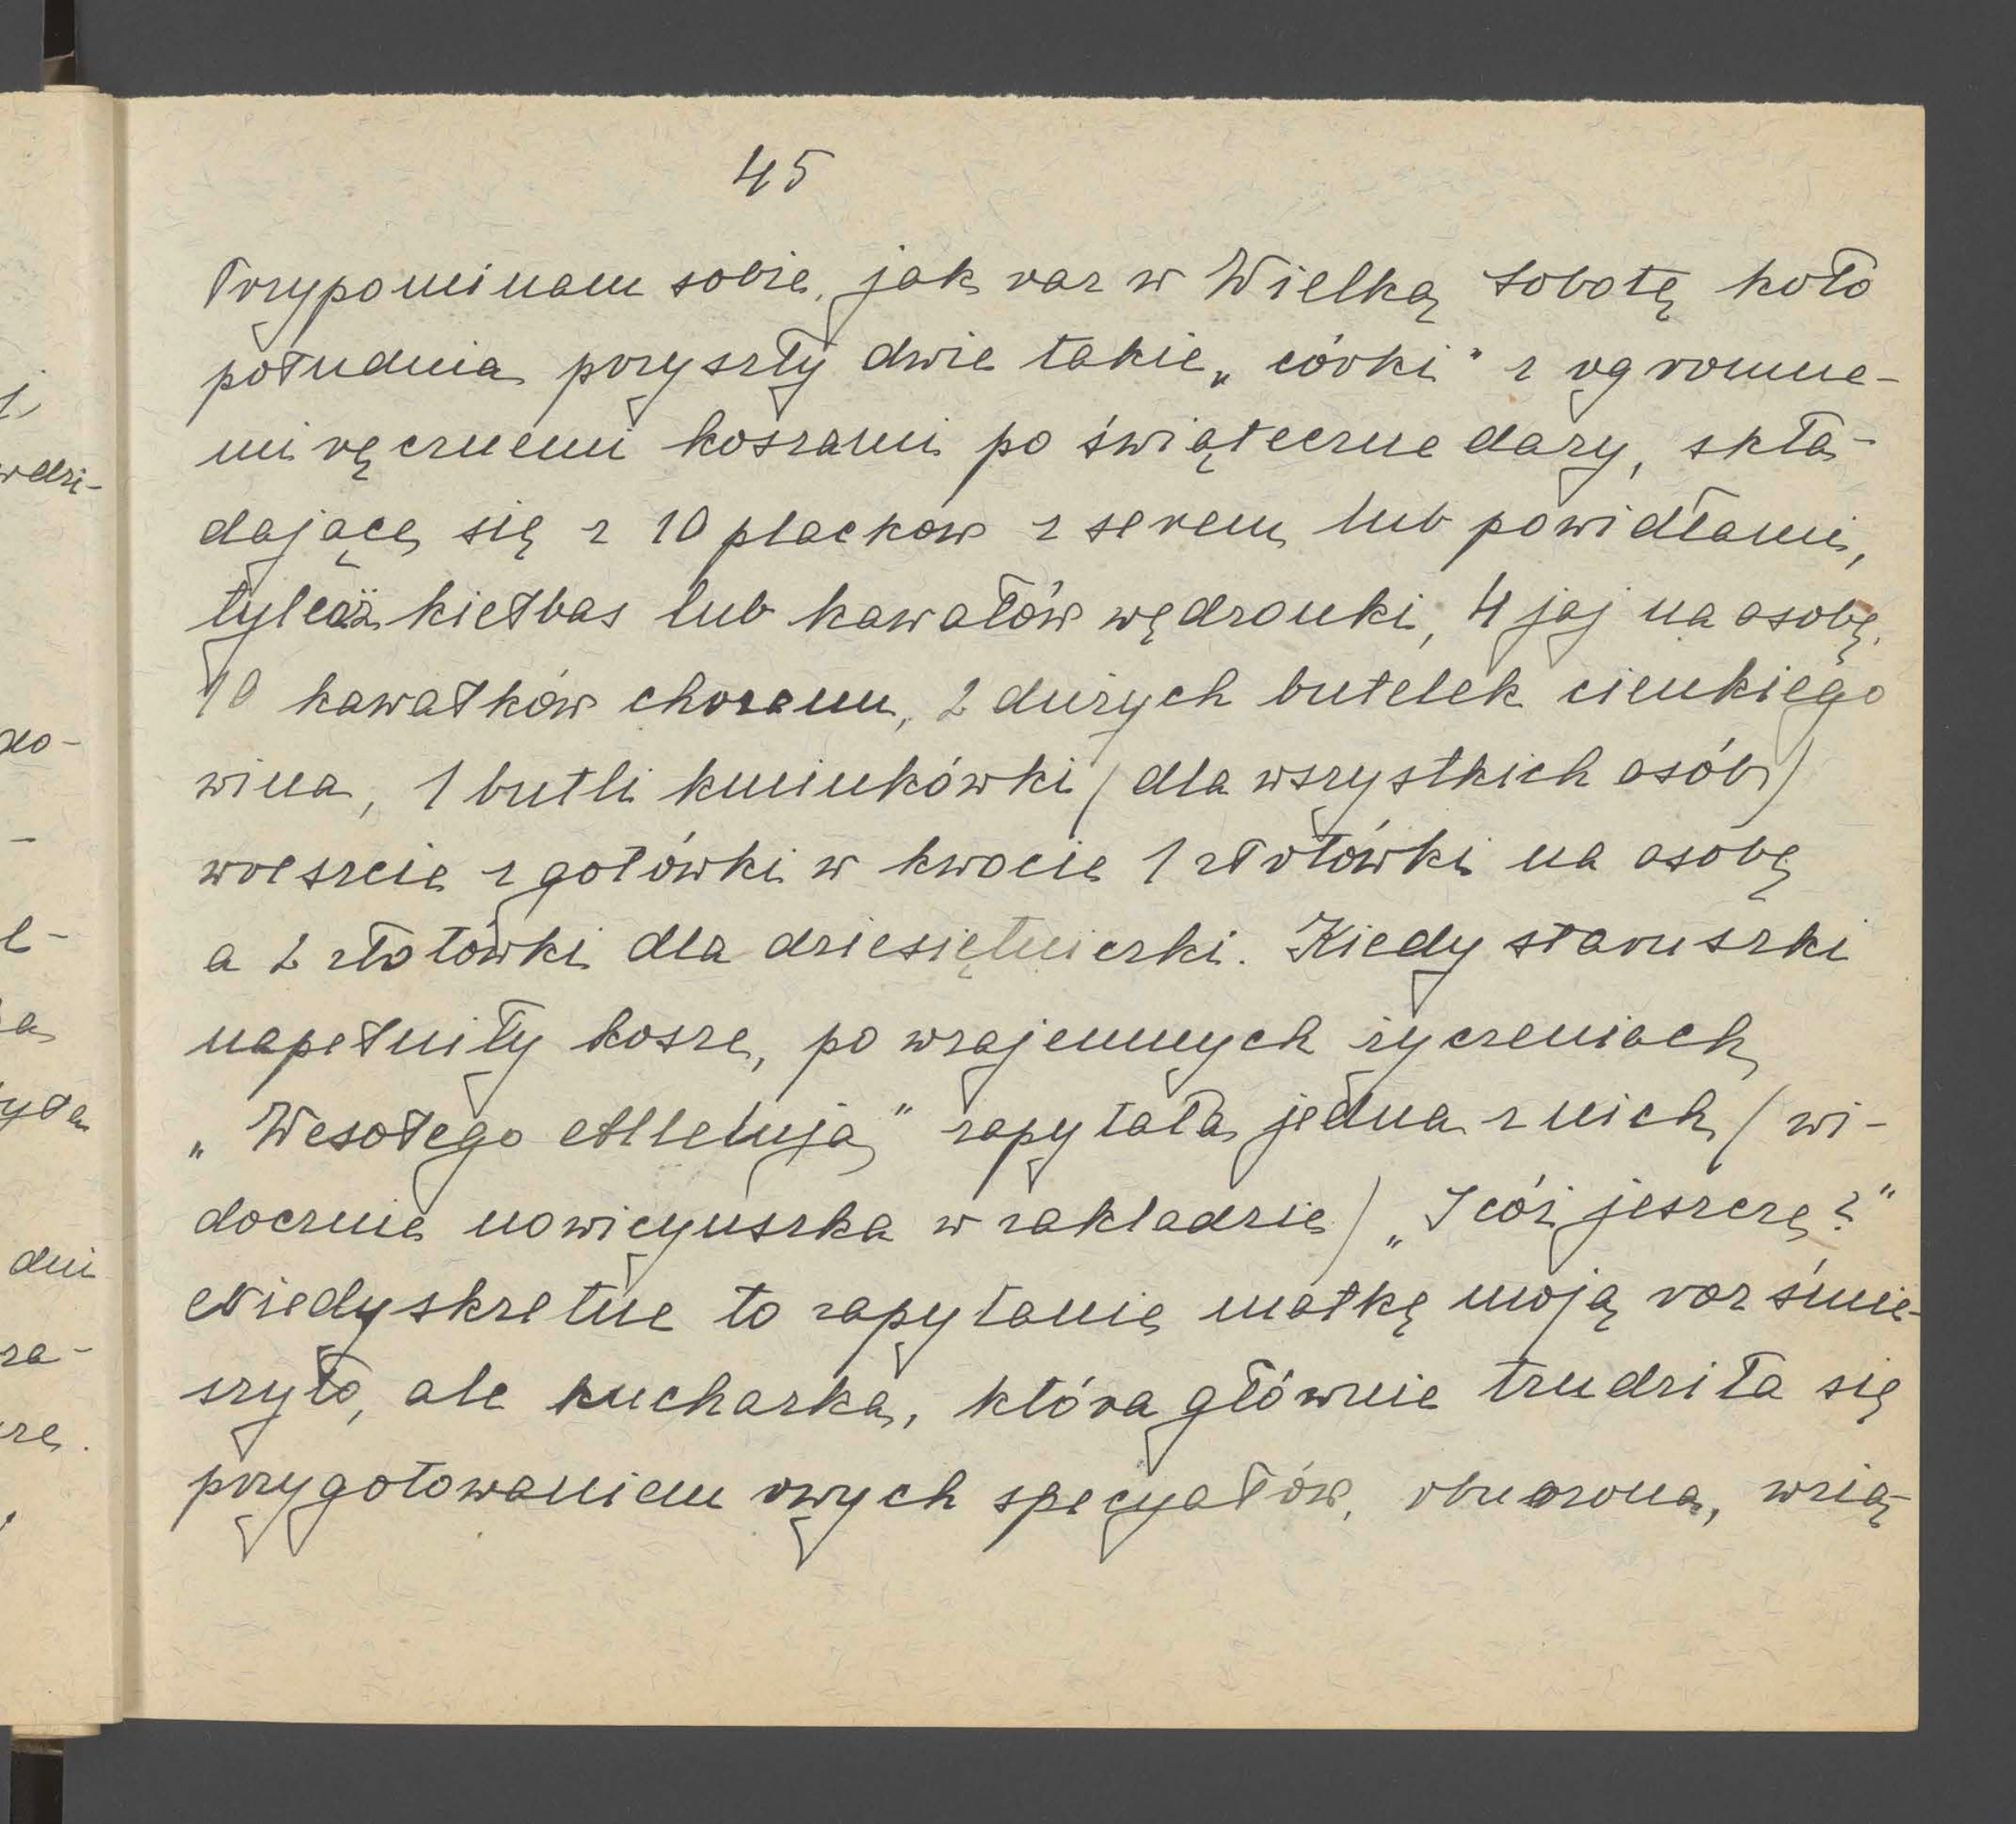 45
Przypominam sobie, jak raz w Wielką Sobotę koło
południa przyszły dwie takie „córki" z ogromne-
mi ręcznemi koszami po świąteczne dary, skła-
dające się z 10 placków z serem lub powidłami,
tyleż kiełbas lub kawałów wędzonki, 4 jaj na osobę,
10 kawałków chrzanu, 2 dużych butelek cienkiego
wina, 1 butli kminkówki (dla wszystkich osób)
wreszcie z gotówki w kwocie 1 złotówki na osobę
a 2 złotówki dla dziesiętniczki. Kiedy staruszki
napełniły kosze, po wzajemnych życzeniach
„Wesołego Alleluja" zapytała jedna z nich (wi-
docznie nowicyuszka w zakładzie) „I cóż jeszcze?"
Niedyskretne to zapytanie matkę moją rozśmie-
szyło, ale kucharka, która głównie trudziła się
przygotowaniem owych specyałów, oburzona, wzią-
j,
wdzi-
-
e-
a
dni
za-
ze.